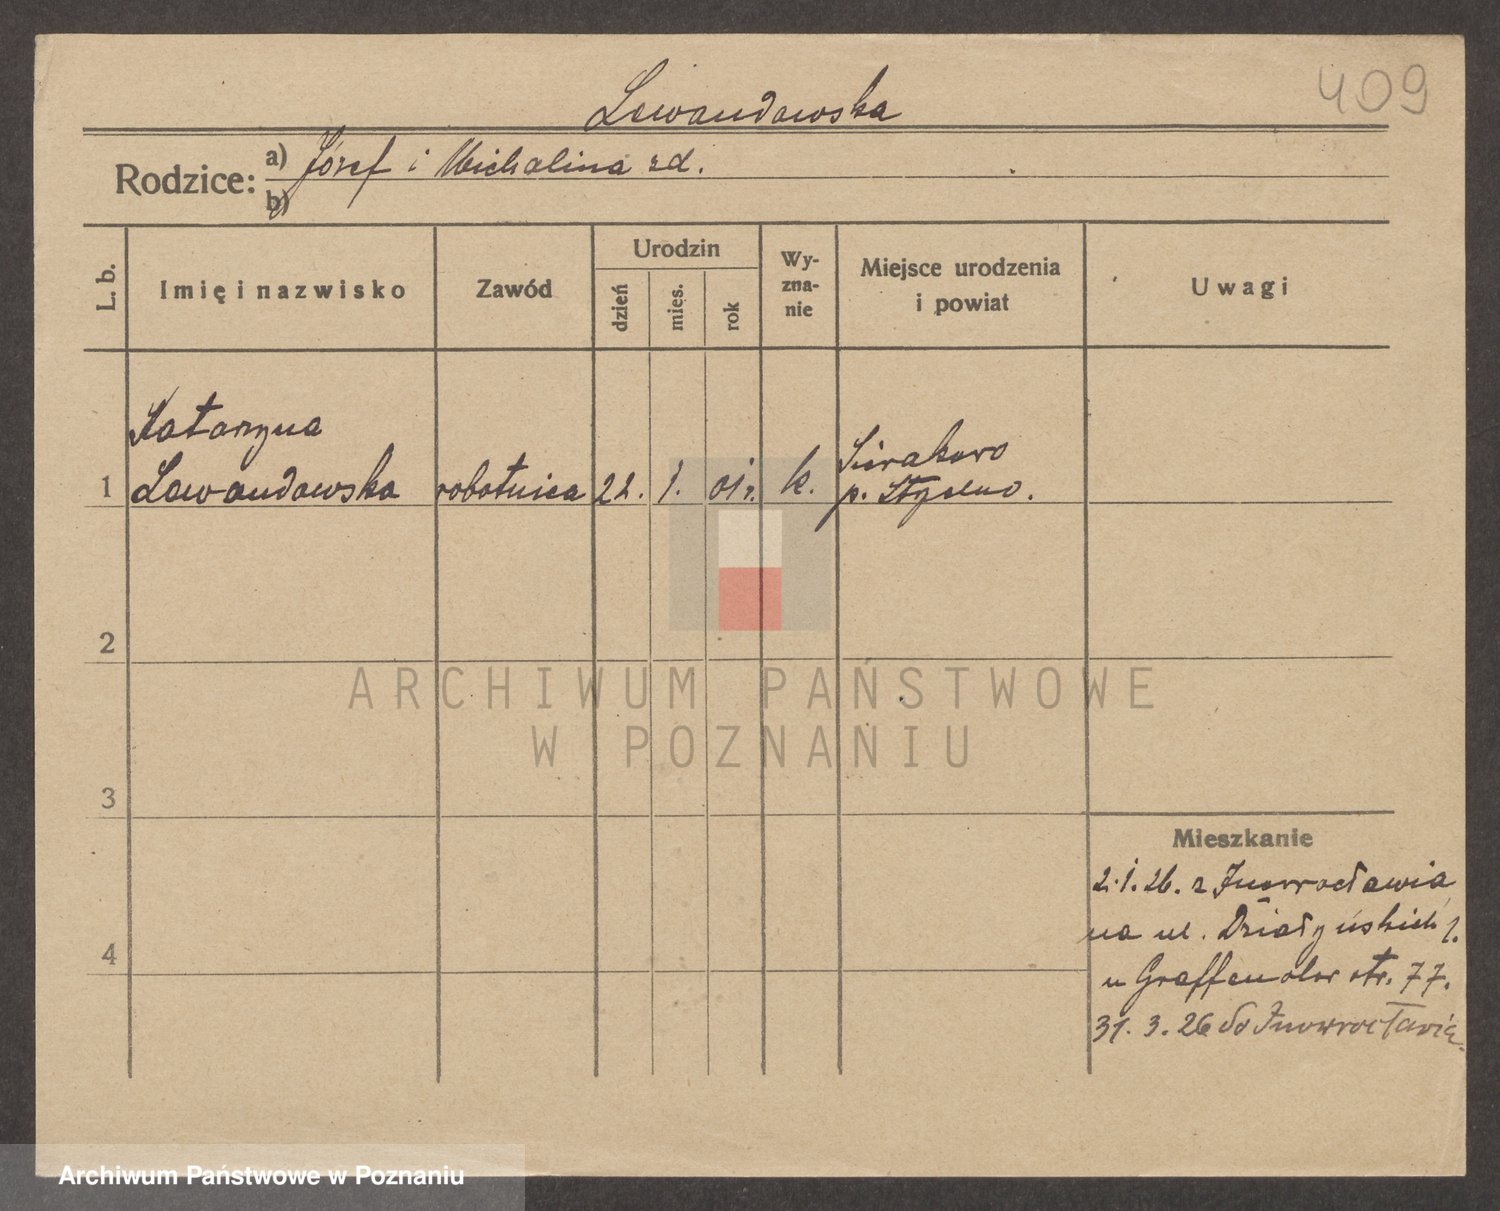 409
Lewandowska
Rodzice: a) Józef i Michalina zd.
b)
L. b.
Imię i nazwisko
Zawód
Urodzin
dzień
mies.
rok
Wy-
zna-
nie
Miejsce urodzenia
i powiat
Uwagi
Katarzyna
1 Lewandowska robotnica 22. 1. 01 r. k. Sierakowo
p. Strzelno.
2
3
4
ARCHIWUM PAŃSTWOWE
W POZNANIU
Mieszkanie
2.1.26. z Inowrocławia
na ul. Działyńskich 1.
u str. 77.
31.3.26 do Inowrocławia
Archiwum Państwowe w Poznaniu